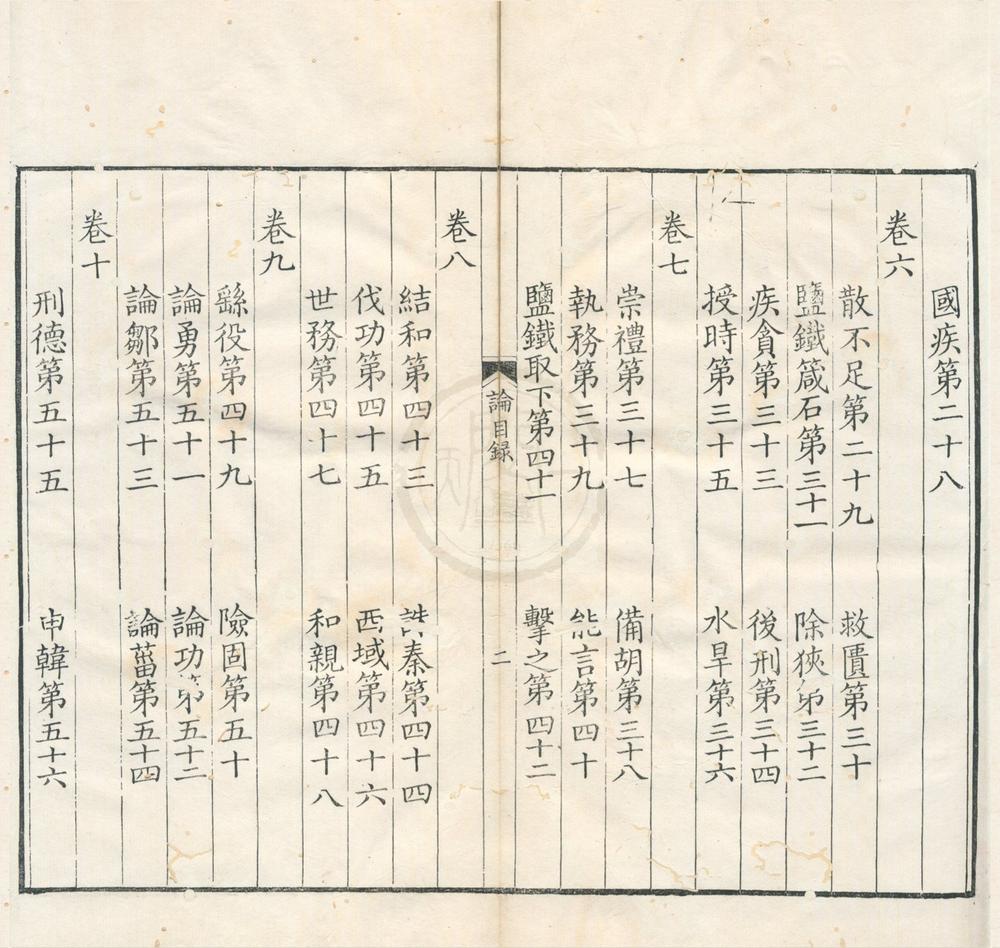 國疾第二十八
卷六
散不足第二十九 救匱第三十
鹽鐵箴石第三十一 除狹第三十二
疾貪第三十三 後刑第三十四
授時第三十五 水旱第三十六
卷七
崇禮第三十七 備胡第三十八
執務第三十九 能言第四十
鹽鐵取下第四十一 擊之第四十二
論目録 二
卷八
結和第四十三 誅秦第四十四
伐功第四十五 西域第四十六
世務第四十七 和親第四十八
卷九
繇役第四十九 險固第五十
論勇第五十一 論功第五十二
論鄒第五十三 論菑第五十四
卷十
刑德第五十五 申韓第五十六